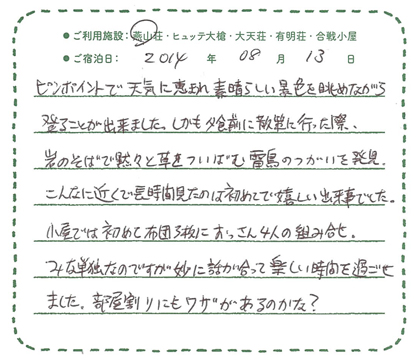 ●ご利用施設：燕山荘・ヒュッテ大槍・大天荘・有明荘・合戦小屋
●ご宿泊日： 2014 年 08 月 13 日
ピンポイントで天気に恵まれ素晴らしい景色を眺めながら
登ることが出来ました。しかも夕食前に散策に行った際、
岩のそばで黙々と草をついばむ雷鳥のつがいを発見。
こんなに近くで長時間見たのは初めてで嬉しい出来事でした。
小屋では初めて布団3枚におっさん4人の組み合せ。
みな単独なのですが妙に話が合って楽しい時間を過ごせ
ました。部屋割りにもワザがあるのかな？